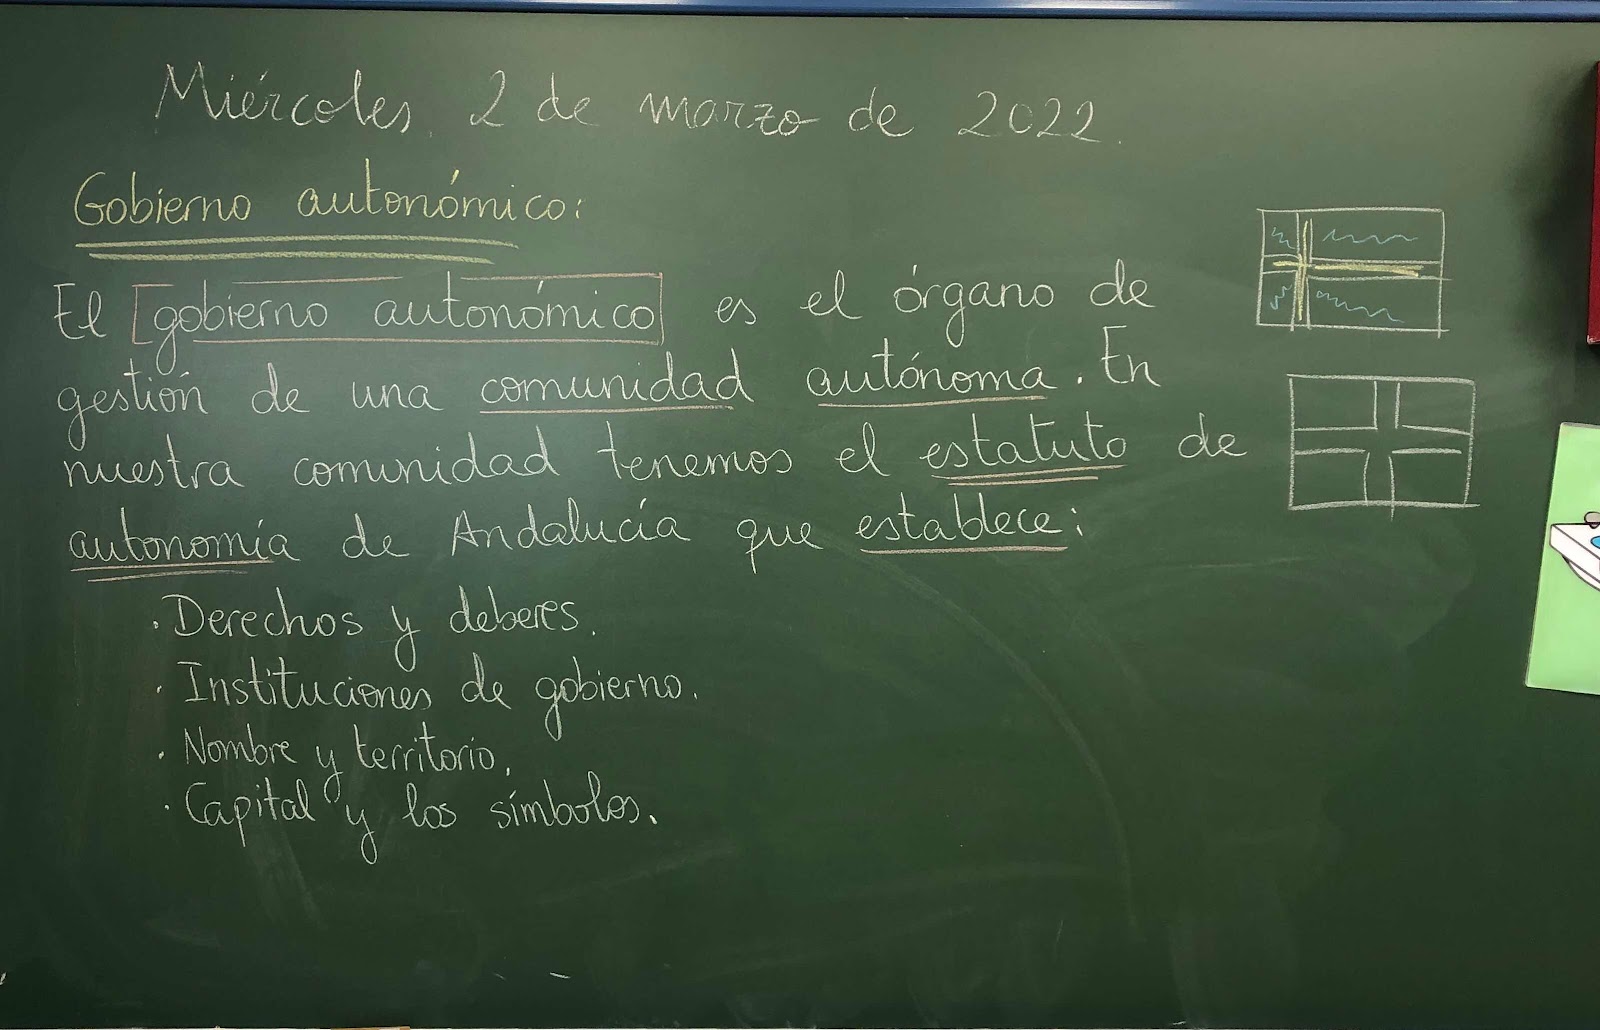 Miércoles, 2 de marzo de 2022.
Gobierno autonómico:
El gobierno autonómico es el órgano de
gestión de una comunidad autónoma. En
nuestra comunidad tenemos el estatuto de
autonomía de Andalucía que establece:
· Derechos y deberes.
· Instituciones de gobierno.
· Nombre y territorio.
· Capital y los símbolos.